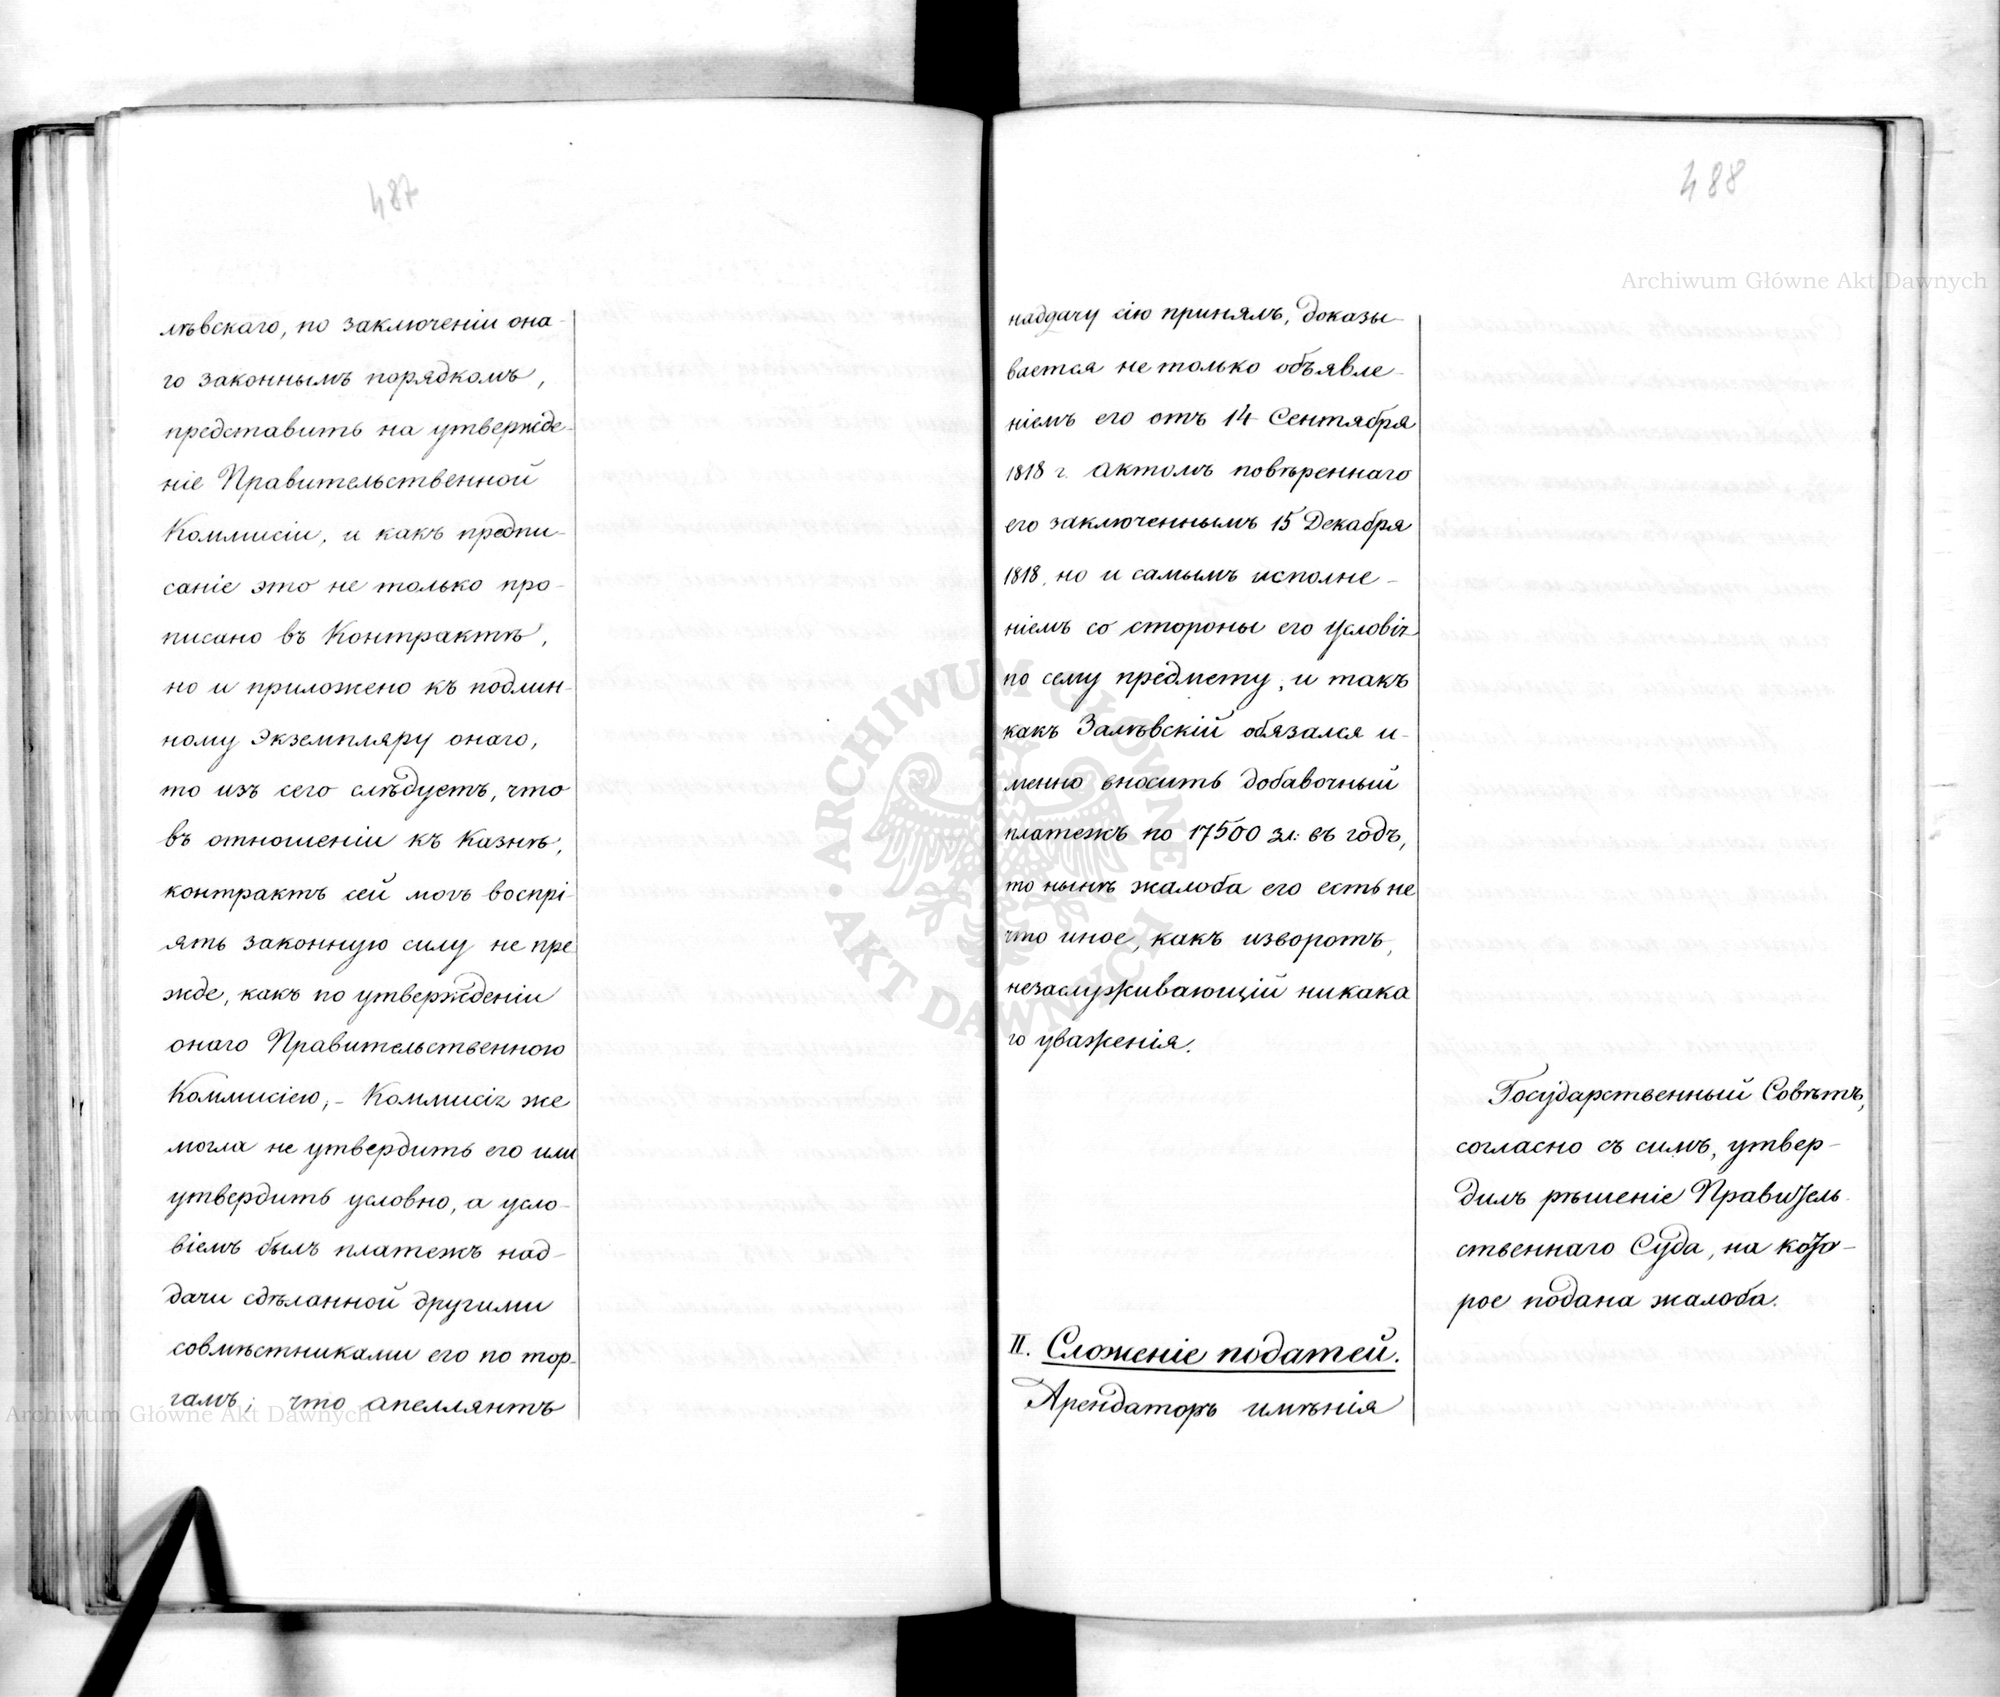 487
лѣвскаго, по заключеніи она-
го законнымъ порядкомъ,
представить на утвержде-
ніе Правительственной
Коммисіи, и какъ предпи-
саніе это не только про-
писано въ Контрактѣ,
но и приложено къ подлин-
ному Экземпляру онаго,
то изъ сего слѣдуетъ, что
въ отношеніи къ Казнѣ,
контрактъ сей могъ воспрі-
ять законную силу не пре
жде, какъ по утвержденіи
онаго Правительственною
Коммисіею,- Коммисія же
могла не утвердить его или
утвердить условно, а усло-
віемъ былъ платежъ над-
дачи сдѣланной другими
совмѣстниками его по тор-
гамъ; что апеллянтъ
488
наддачу сію принялъ, доказы-
вается не только объявле-
ніемъ его отъ 14 Сентября
1818 г. актомъ повѣреннаго
его заключеннымъ 15 Декабря
1818, но и самымъ исполне-
ніемъ со стороны его условія
по сему предмету, и такъ
какъ Залѣвскій обязался и-
менно вносить добавочный
платежъ по 17500 зл: въ годъ,
то нынѣ жалоба его есть не
что иное, какъ изворотъ,
незаслуживающій никака
го уваженія.
Государственный Совѣтъ,
согласно съ симъ, утвер-
дилъ рѣшеніе Правитель-
ственнаго Суда, на кото-
рое подана жалоба.
II. Сложеніе податей.
Арендаторъ имѣнія
Archiwum Główne Akt Dawnych
Archiwum Główne Akt Dawnych
ARCHIWUM GŁÓWNE AKT DAWNYCH